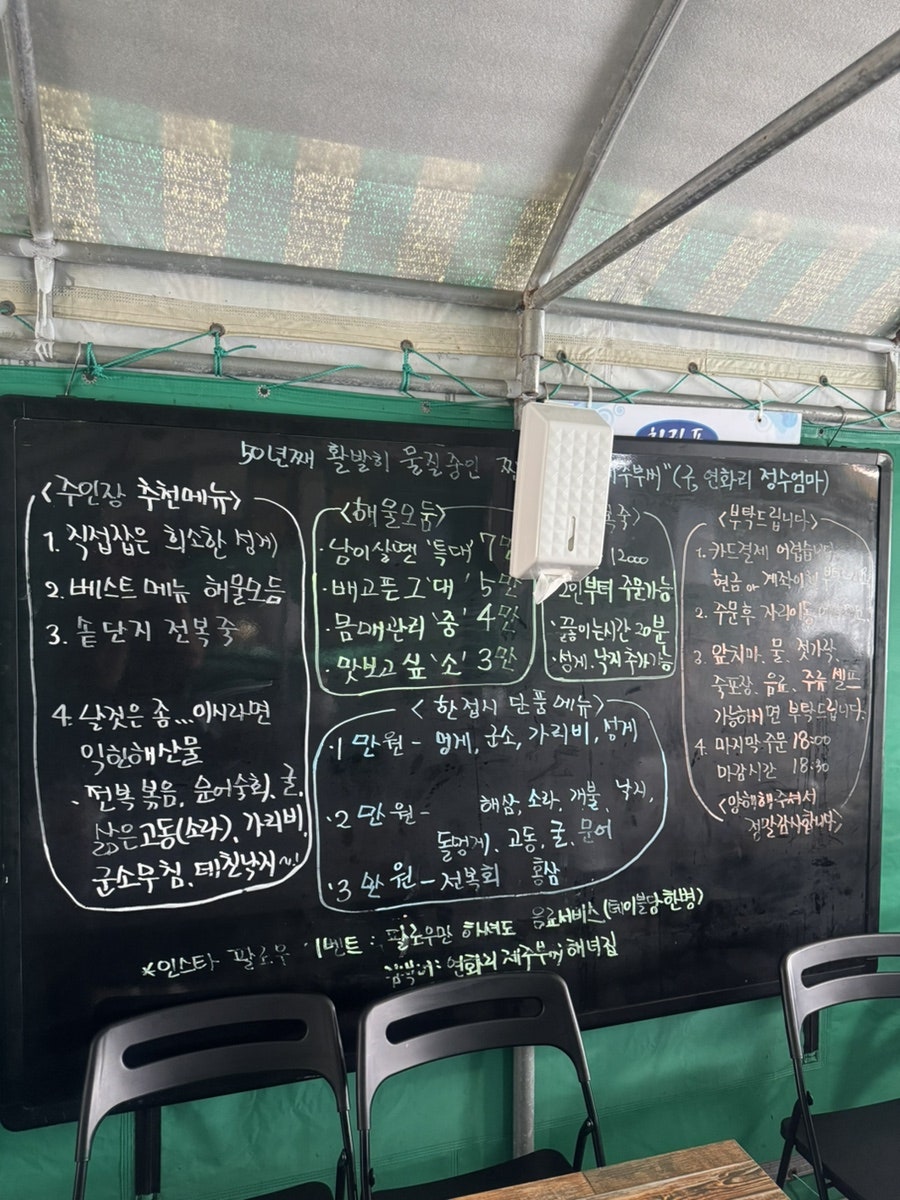 50년째 활발히 물질중인
(구, 연화리 정수엄마)
<주인장 추천메뉴>
1. 직접잡은 희소한 성게
2. 베스트 메뉴 해물모듬
3. 솥단지 전복죽
4. 날것은 좀...이시라면
익힌해산물
전복볶음, 문어숙회, 굴,
삶은고동(소라), 가리비,
군소무침, 데친낙지~!
<해물모듬>
·남이살땐 '특대' 7만
·배고픈그 '대' 5만
·몸매관리 '중' 4만
·맛보고싶 '소' 3만
죽>
12000
2인부터 주문가능
·끓이는시간 20분
·성게, 낙지 추가가능
<한접시 단품메뉴>
·1만원 - 멍게, 군소, 가리비, 성게
·2만원 - 해삼, 소라, 개불, 낙지,
돌멍게, 고동, 굴, 문어
·3만원 - 전복회 홍삼
<부탁드립니다>
1. 카드결제 어렵습니다.
현금 or 계좌이체
2. 주문후 자리이동
3. 앞치마, 물, 젓가락,
죽포장, 음료, 주류 셀프
가능하시면 부탁드립니다.
4. 마지막주문 18:00
마감시간 18:30
<양해해주셔서
정말감사합니다>
*인스타 팔로우 이벤트 : 팔로우만 하셔도 음료서비스(테이블당 한병)
연화리 제주부부 해녀집